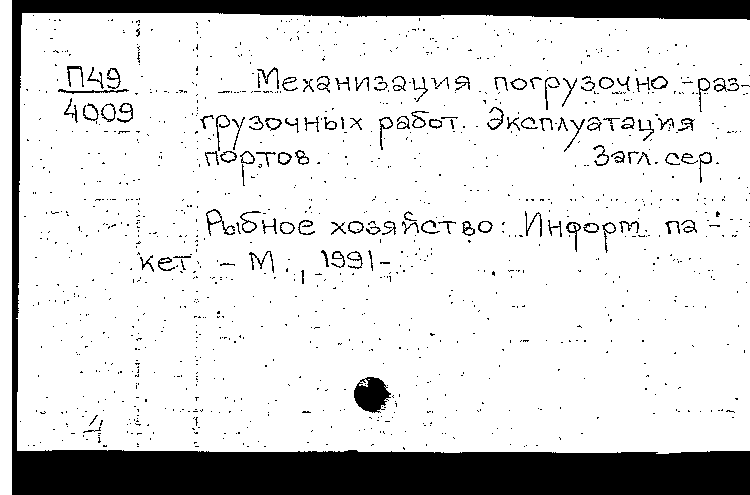 П49
4009
Механизация погрузочно-раз-
грузочных работ. Эксплуатация
портов.
Загл. сер.
Рыбное хозяйство: Информ. па-
кет. - М., 1991-
4